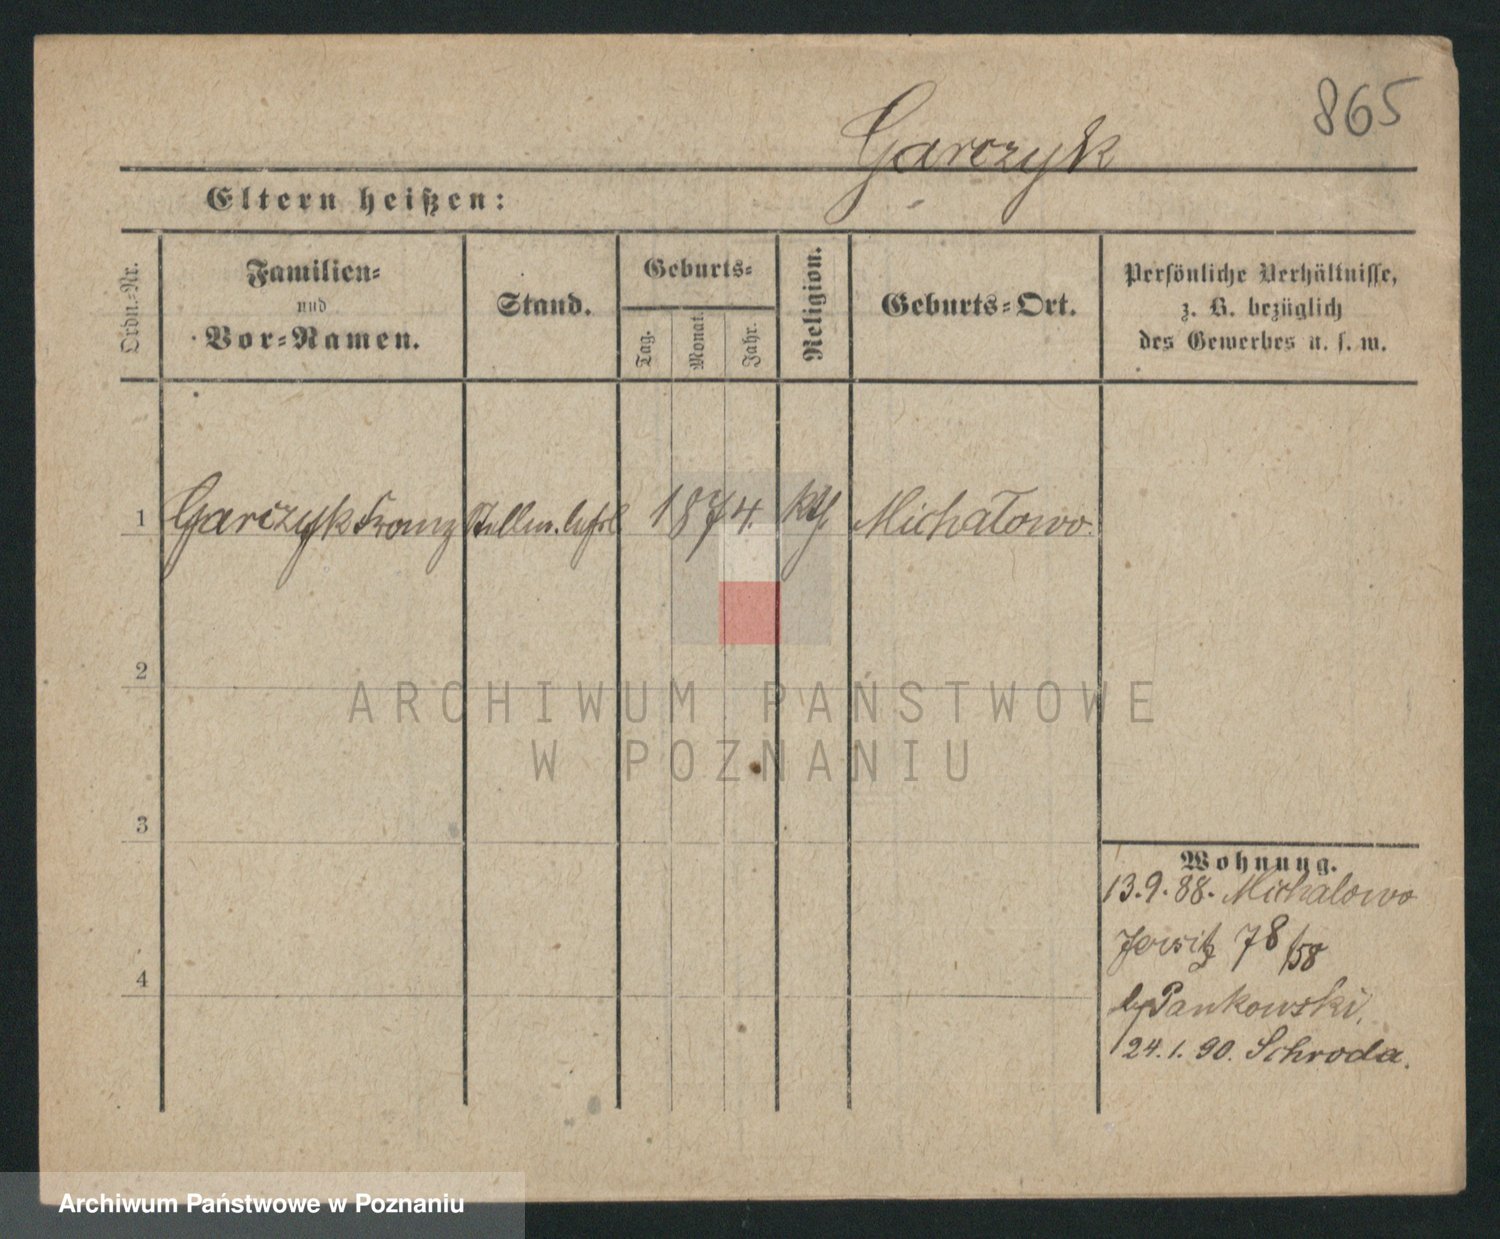 865
Garczyk
Eltern heißen:
Ordn.-Nr.
Familien-
und
Vor-Namen.
Stand.
Geburts-
Tag.
Monat.
Jahr.
Religion.
Geburts-Ort.
Persönliche Verhältnisse,
z. B. bezüglich
des Gewerbes u. s. w.
1 Garczyk Franz Stellm. 1874. kth Michałowo.
2
ARCHIWUM PAŃSTWOWE
W POZNANIU
3
Wohnung.
13.9.88. Michalowo
Jersitz 78/58
b/Pankowski,
4
24.1.90. Schroda.
Archiwum Państwowe w Poznaniu